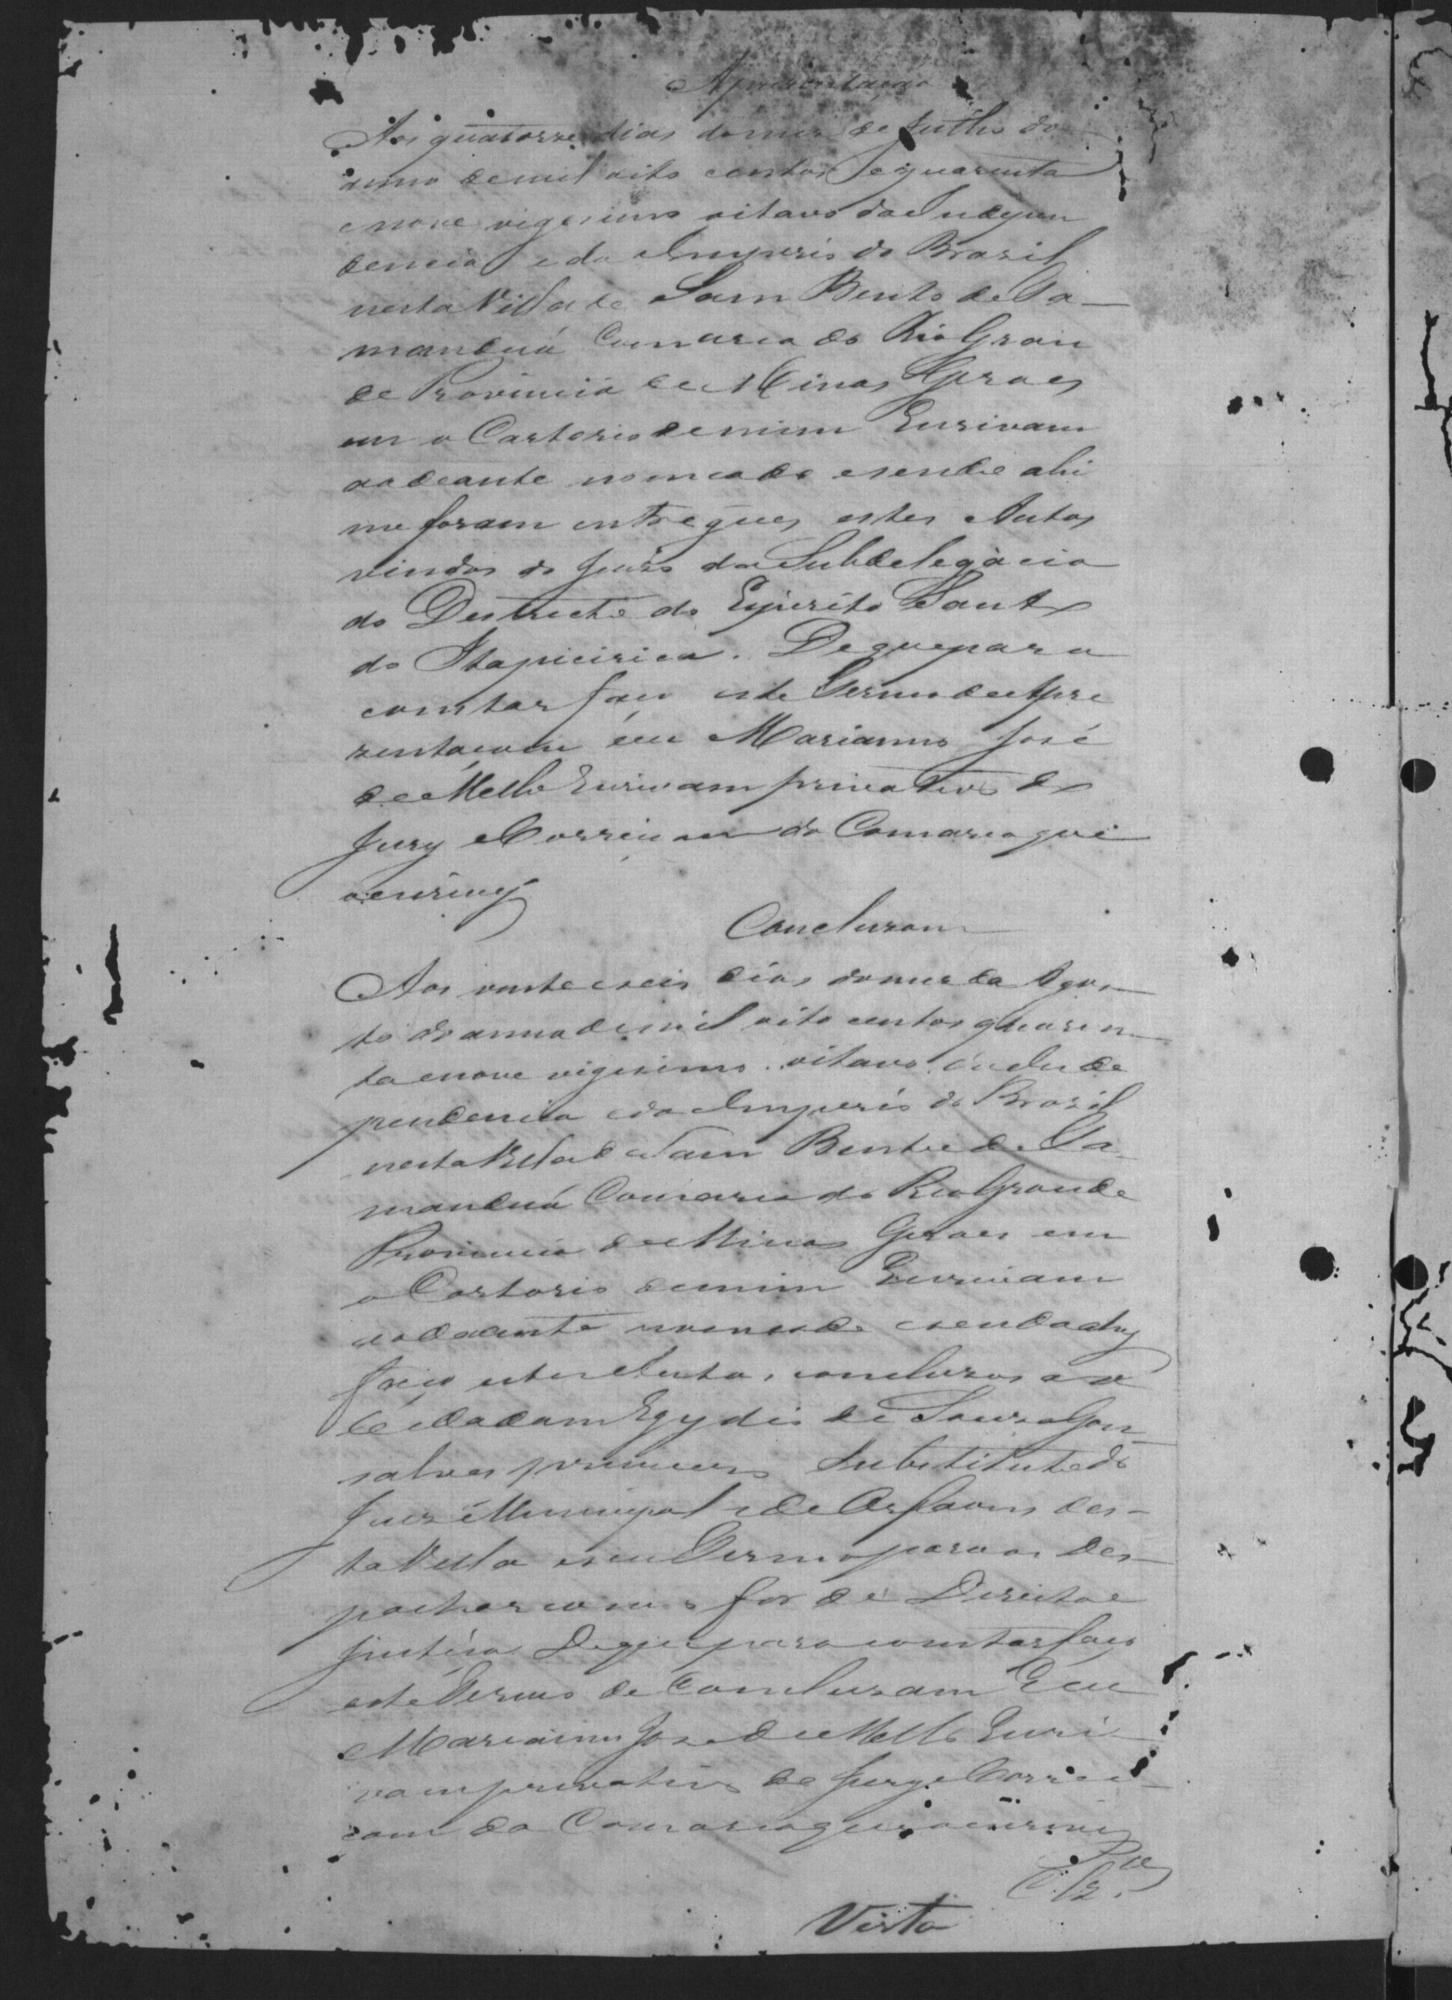 Apresentação
Aos quatorze dias do mes de Julho do
anno de mil oito centos e quarenta
e nove vigesimo oitavo da Indepen
dencia e do Imperio do Brazil
nesta Villa de Sam Bento de Ta-
manduá Comarca do Rio Gran
de Provincia de Minas Geraes
em o Cartorio de mim Escrivam
ao deante nomeado e sendo ahi
me foram entregues estes Autos
vindos do Juizo da Subdelegacia
do Destricto do Espirito Santo
do Itapicirica. De que para
constar faço este Termo de Apre
zentacam eu Marianno José
de Mello Escrivam privativo do
Jury e Correicam da Comarca que
o escrevy
Concluzam
Aos vinte e seis dias do mes de Agos-
to do anno de mil oito centos quaren
ta e nove vigesimo oitavo da Inde
pendencia e do Imperio do Brazil
nesta Villa de Sam Bento de Ta
manduá Comarca do Rio Grande
Provincia de Minas Geraes em
o Cartorio de mim Escrivam
ao deante nomeado e sendo ahy
faço estes Autos concluzos ao
Cidadam Egydio de Souza Gon
salves primeiro Substituto do
Juiz Municipal e de Orfaons des-
ta Villa e seu Termo para os des-
pachar como for de Direito e
Justiça De que para constar faço
este Termo de Concluzam Eu
Marianno Jose de Mello Escri
vam privativo do Jury e Correi-
cam da Comarca que o escrevi
Visto